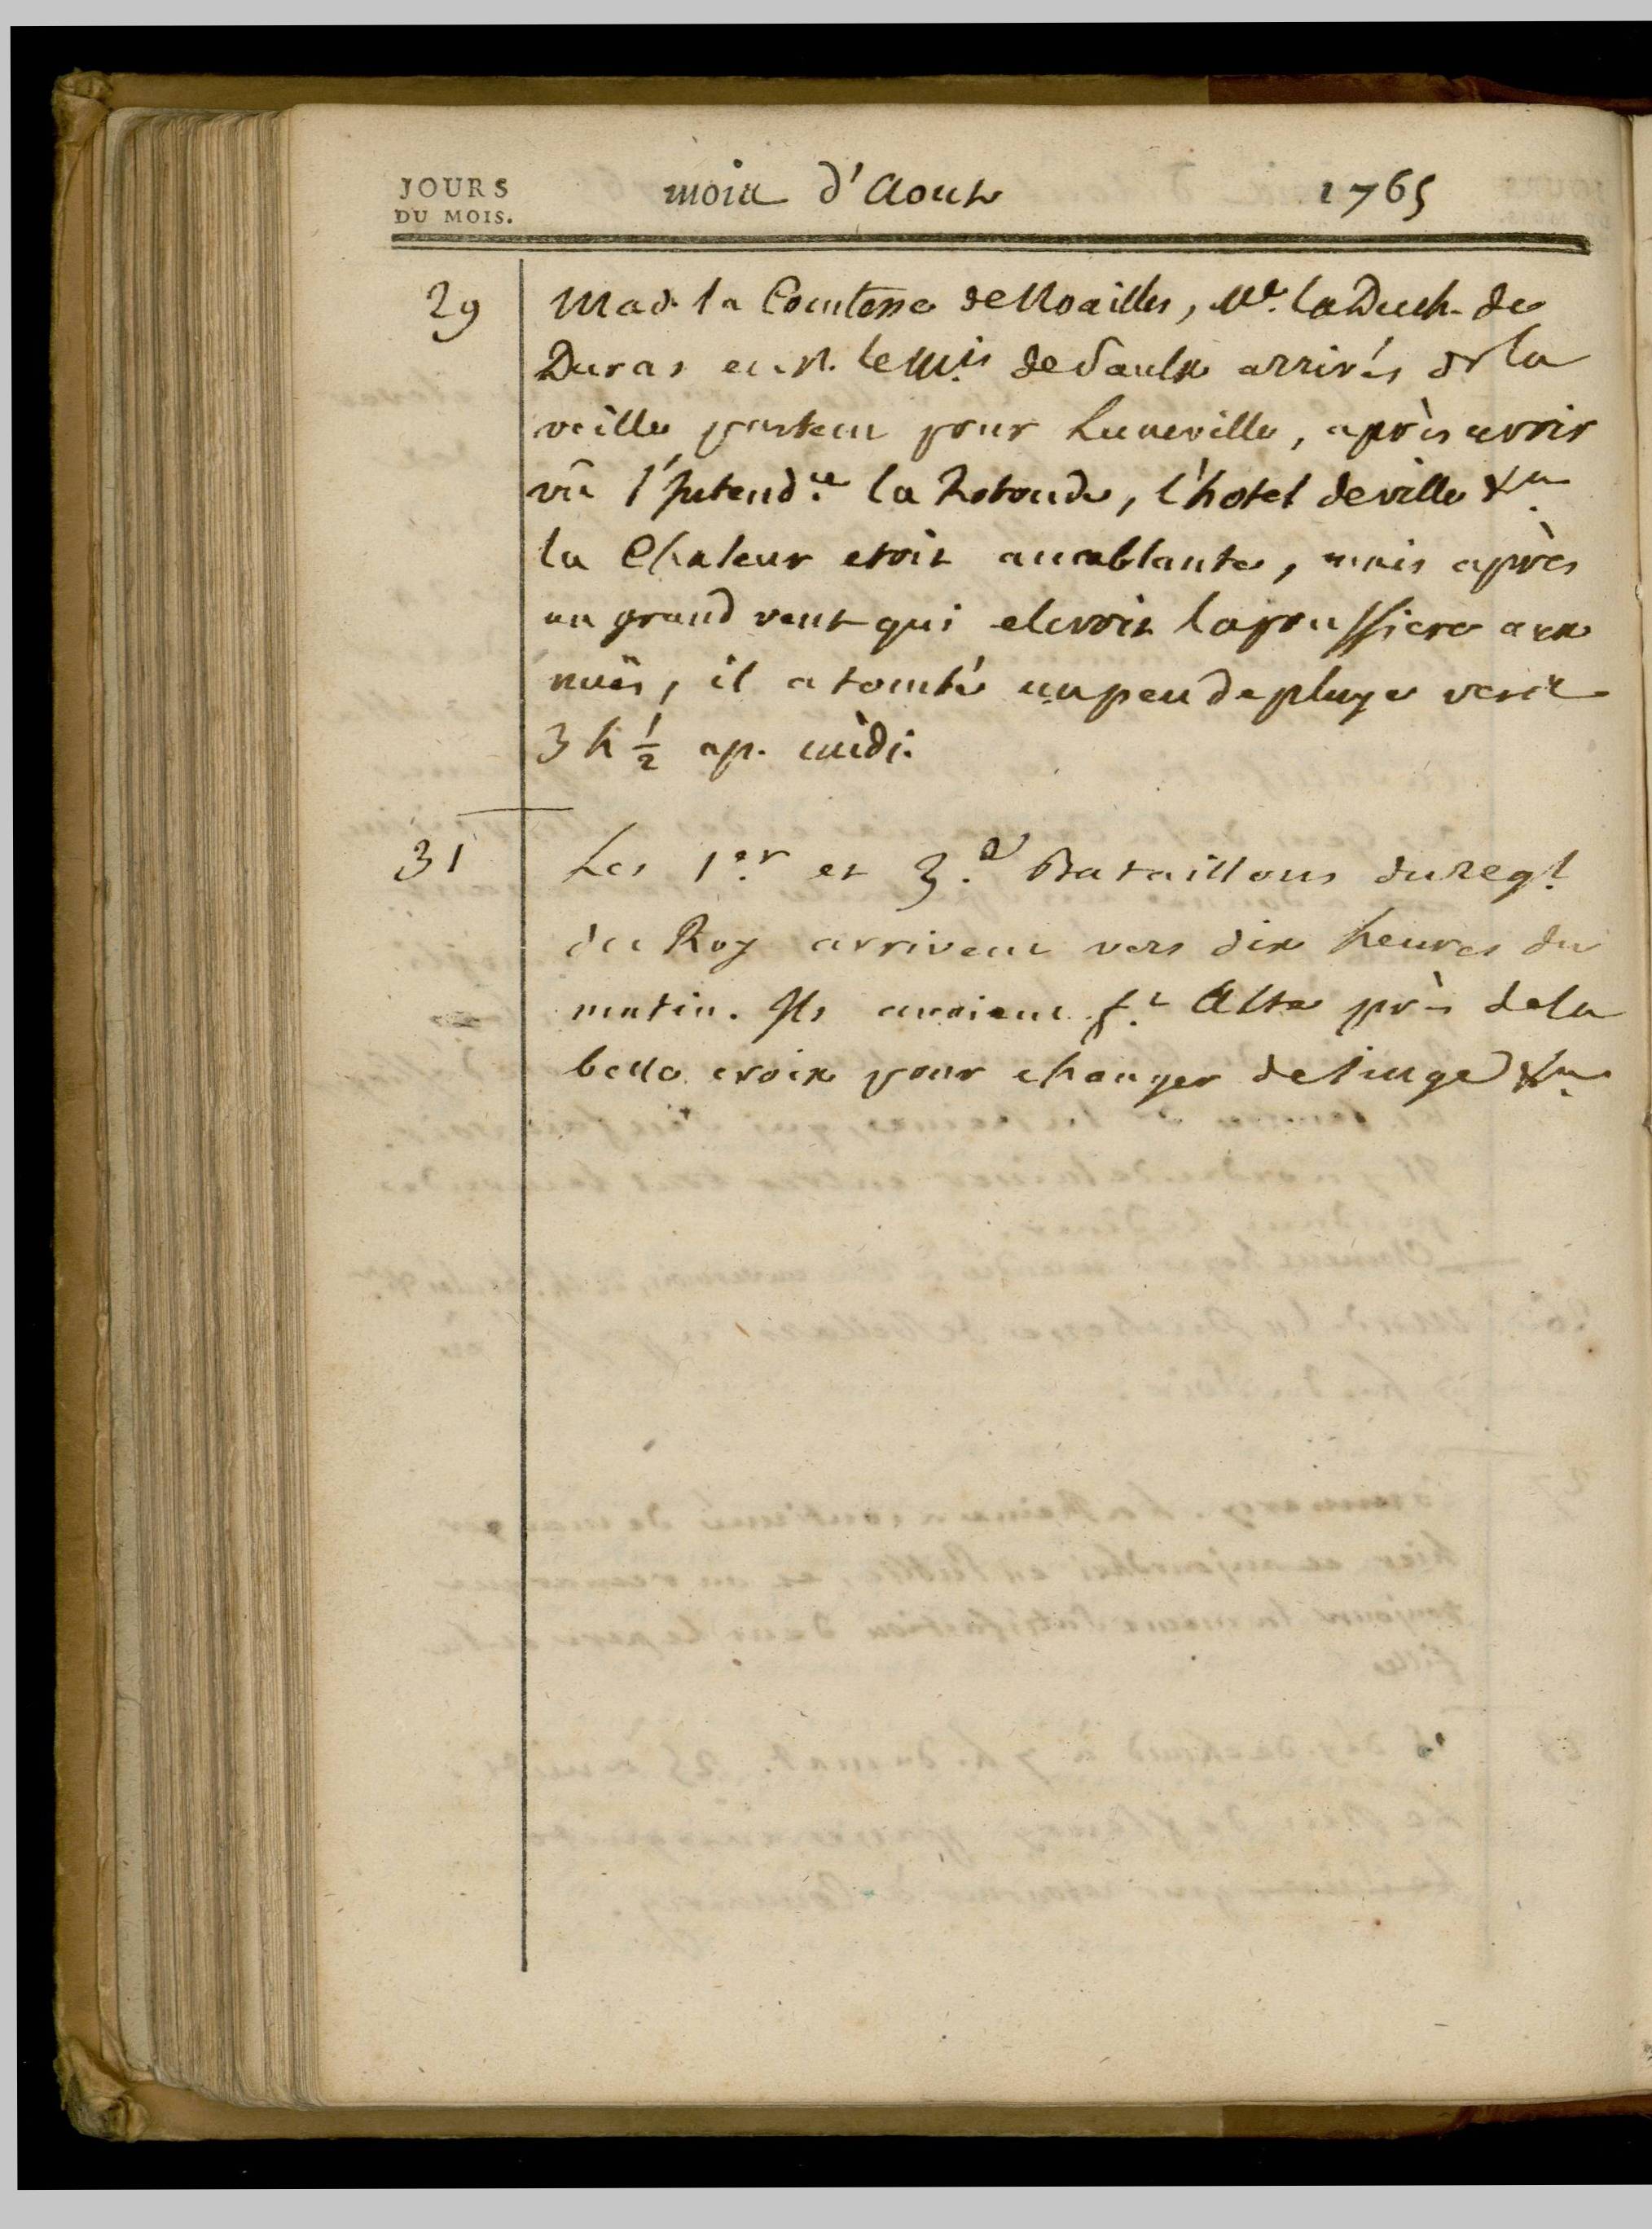 JOURS
DU MOIS.
mois d'Aoust 1765
29 Mad. la Comtesse de Noailles, Me. la Duch. de
Duras et M. le Mis de Saulx arrivés de la
veille partent pour Luneville, après avoir
vû l'Intendce la Rotonde, l'hotel de ville &a.
la Chaleur etoit accablante, mais après
un grand vent qui elevoit la poussiere aux
nuës, il a tombé un peu de pluye vers
3 h ½ ap. midi.
31 Les 1er. et 3.e Bataillons du Regt.
du Roy arrivent vers dix heures du
matin. Ils avoient ft. Alte près de la
belle croix pour changer de linge &a.